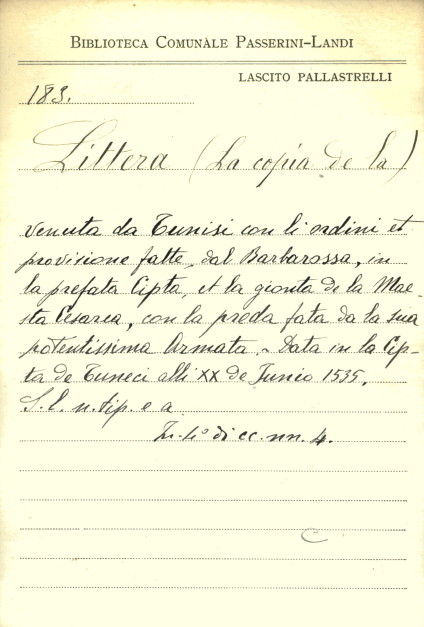 BIBLIOTECA COMUNÀLE PASSERINI-LANDI
LASCITO PALLASTRELLI
183.
Littera (La copia de la)
venuta da Tunisi con li ordini et
provisione fatte, dal Barbarossa, in
la prefata Cipta, et la gionta de la Mae-
sta Cesarea, con la preda fata da la sua
potentissima Armata. - Data in la Cip-
ta de Tuneci alli XX de Junio 1535.
S. l. n. tip. e a
In-4° di cc. nn. 4.